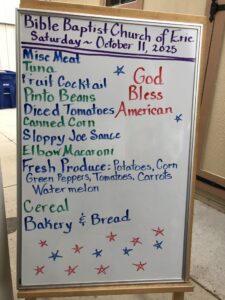 Bible Baptist Church of Erie
Saturday ~ October 11, 2025
Misc Meat
Tuna
Fruit Cocktail
Pinto Beans
Diced Tomatoes
Canned Corn
Sloppy Joe Sauce
Elbow Macaroni
God
Bless
American
Fresh Produce: Potatoes, Corn
Green Peppers, Tomatoes, Carrots
Watermelon
Cereal
Bakery & Bread